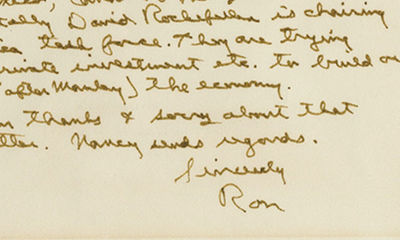 tally David Rockefeller is chairing
task force. They are trying
private investment etc. to build
after Monday) the economy.
thanks & sorry about that
Nancy sends regards.
Sincerely
Ron